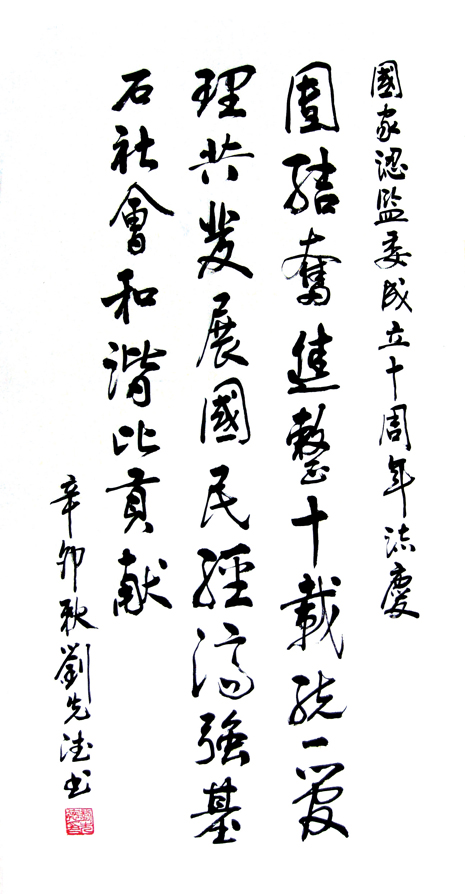 國家認監委成立十周年誌慶
團結奮進整十載統一管
理共發展國民經濟強基
石社會和諧比貢献
辛卯秋劉先德书